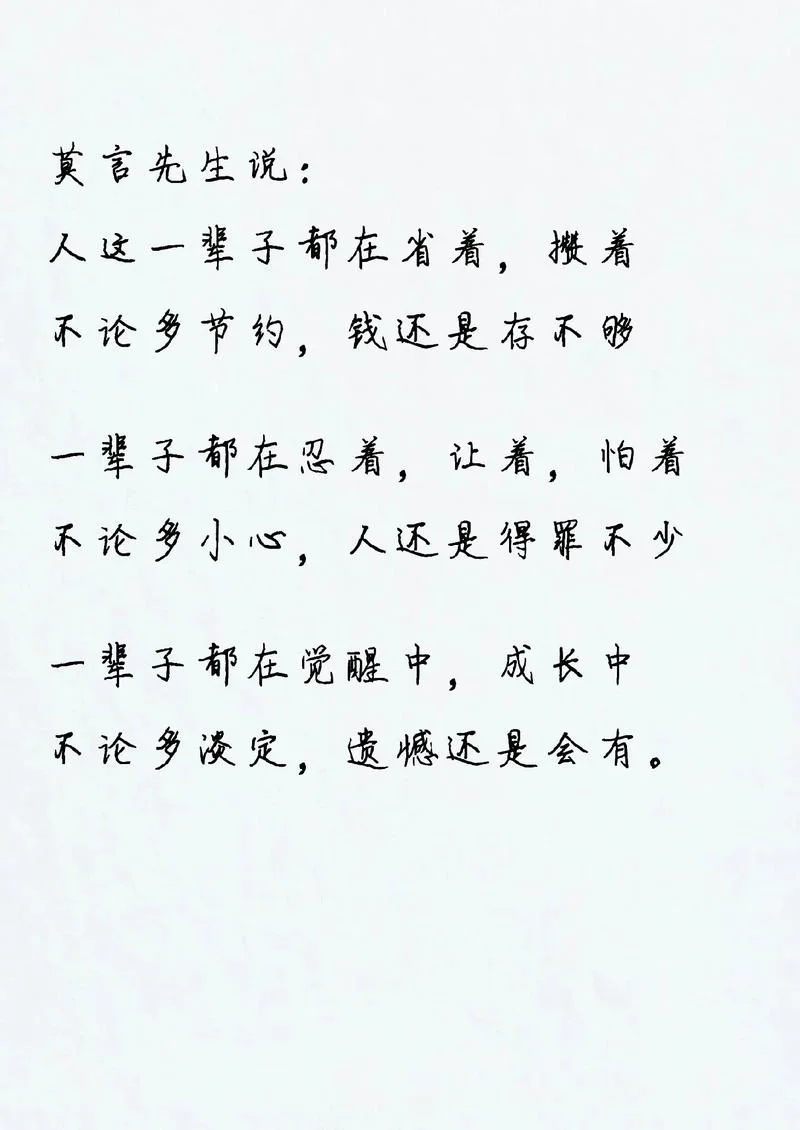 莫言先生说：
人这一辈子都在省着，攒着
不论多节约，钱还是存不够
一辈子都在忍着，让着，怕着
不论多小心，人还是得罪不少
一辈子都在觉醒中，成长中
不论多淡定，遗憾还是会有。